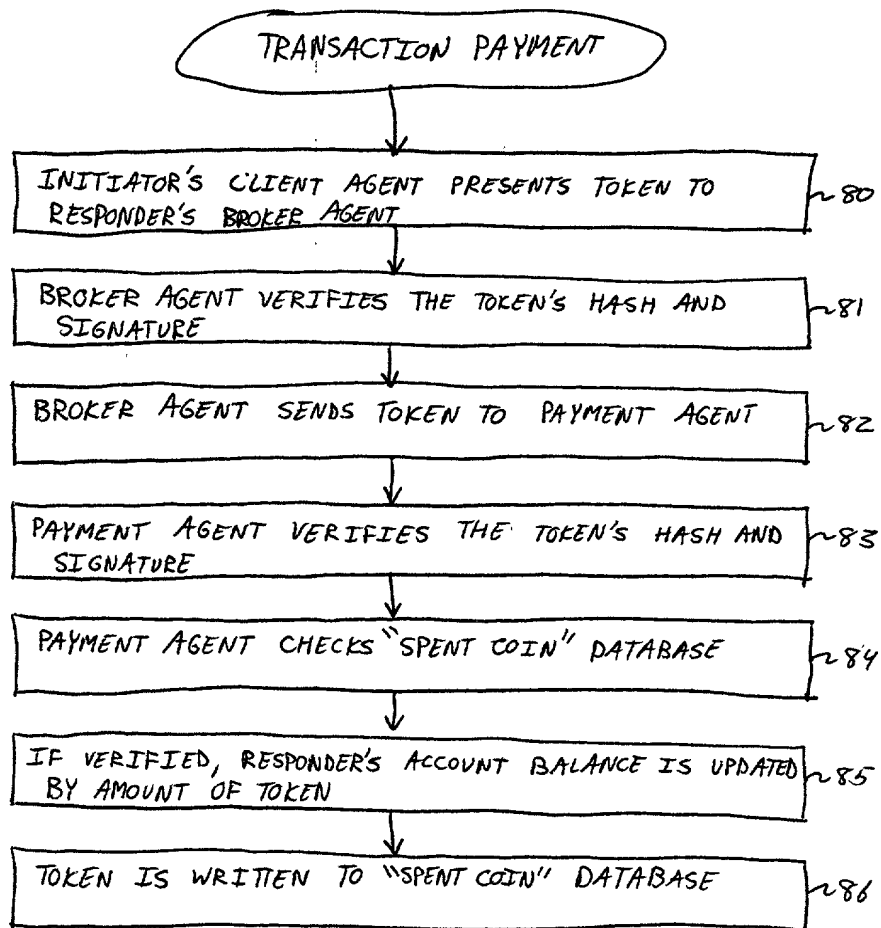 TRANSACTION PAYMENT
INITIATOR'S CLIENT AGENT PRESENTS TOKEN TO
RESPONDER'S BROKER AGENT
80
BROKER AGENT VERIFIES THE TOKEN'S HASH AND
SIGNATURE
81
BROKER AGENT SENDS TOKEN TO PAYMENT AGENT
82
PAYMENT AGENT VERIFIES THE TOKEN'S HASH AND
SIGNATURE
83
PAYMENT AGENT CHECKS "SPENT COIN" DATABASE
84
IF VERIFIED, RESPONDER'S ACCOUNT BALANCE IS UPDATED
BY AMOUNT OF TOKEN
85
TOKEN IS WRITTEN TO "SPENT COIN" DATABASE
86